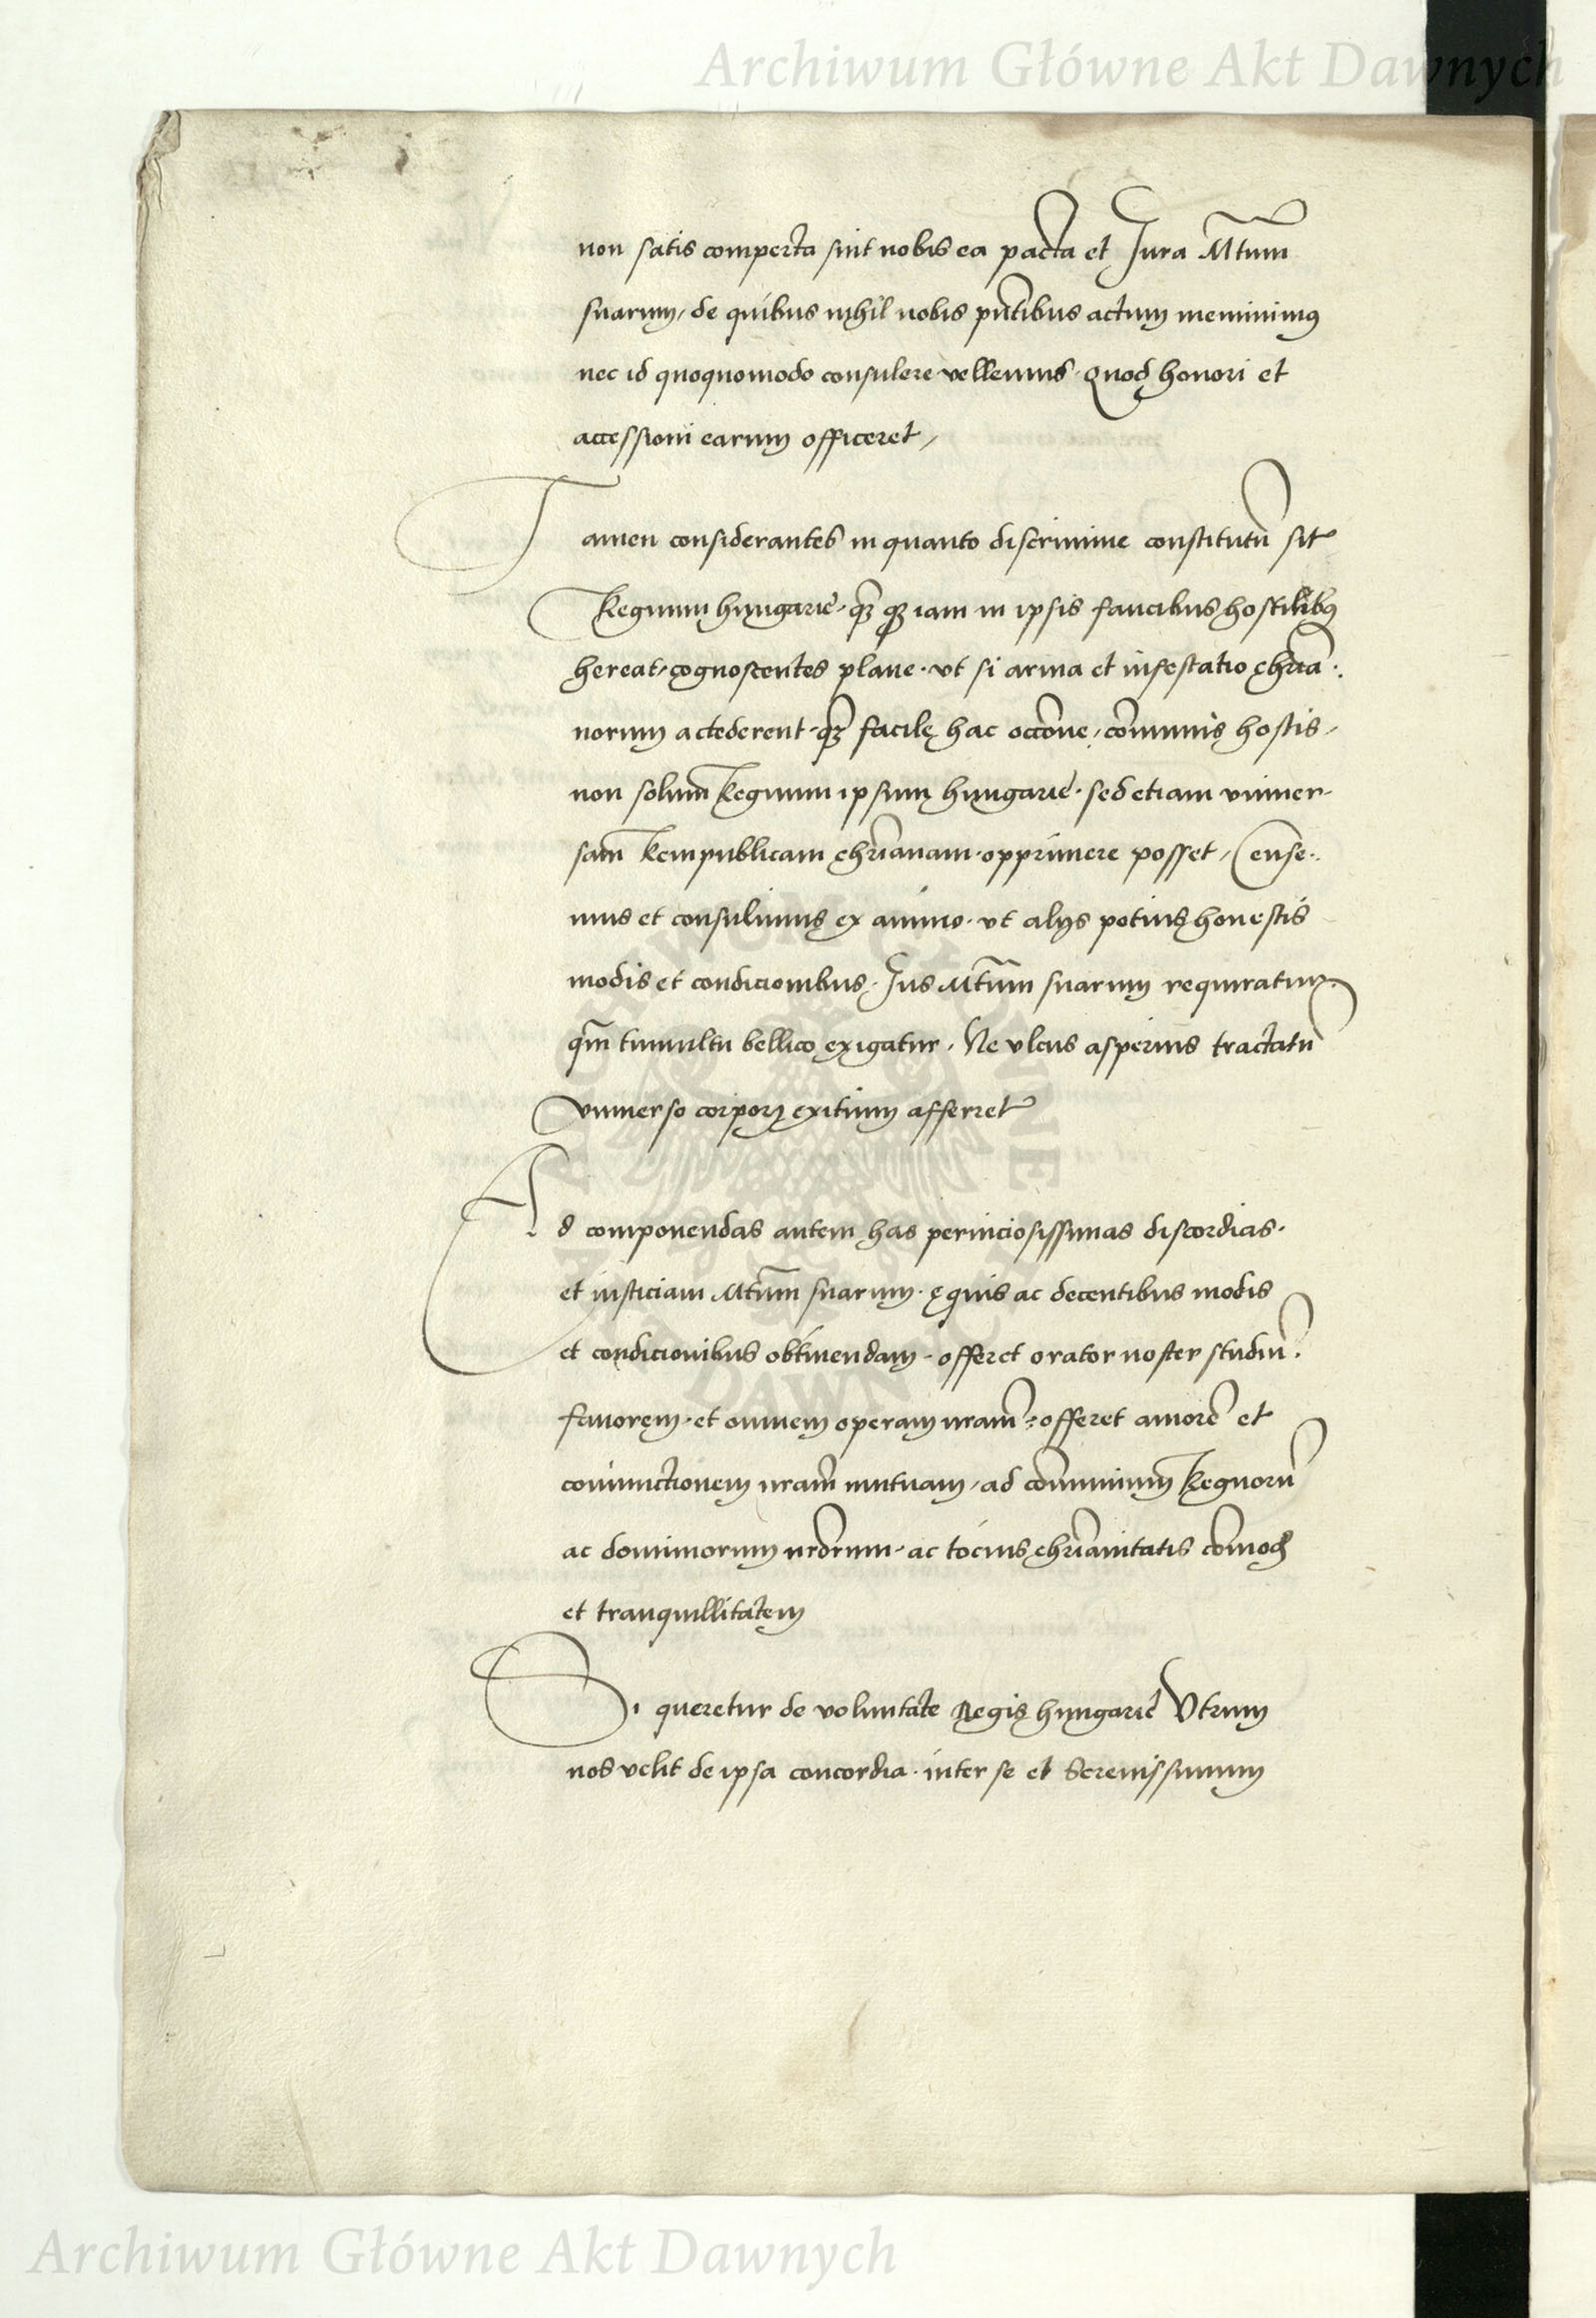 Archiwum Główne Akt Dawnych
non satis comperta sint nobis ea pacta et Jura Mtum
suarum, de quibus nihil nobis pntibus actum meminimus
nec id quoquomodo consulere vellemus. Quod honori et
accessioni earum officeret,
Tamen considerantes in quanto discrimine constitutū sit
Regnum hungarie, iam in ipsis faucibus hostilibus
hereat, cognoscentes plane. vt si arma et infestatio chria.
norum accederent facile hac occōne, cōmunis hostis,
non solum Regnum ipsum hungarie. sed etiam vniuer-
sam Rempublicam chrianam. opprimere posset, Cense.
mus et consulimus ex animo. vt alijs potius honestis
modis et condicionibus. Jus Mtum suarum requiratur.
qm tumultu bellico exigatur. Ne vlcus asperius tractatū
vniuerso corpori exitium afferret
Ad componendas autem has perniciosissimas discordias.
et iusticiam Mtum suarum. equis ac decentibus modis
et condicionibus obtinendam. offeret orator noster studiū.
fauorem. et omnem operam nram. offeret amorē et
coniunctionem nram mutuam, ad cōmunium Regnorū
ac dominiorum nrorum. ac tocius chrianitatis cōmod
et tranquillitatem
Si queretur de voluntate Regis hungarie Vtrum
nos velit de ipsa concordia. inter se et Serenissimum
ARCHIWUM GŁÓWNE AKT DAWNYCH
Archiwum Główne Akt Dawnych